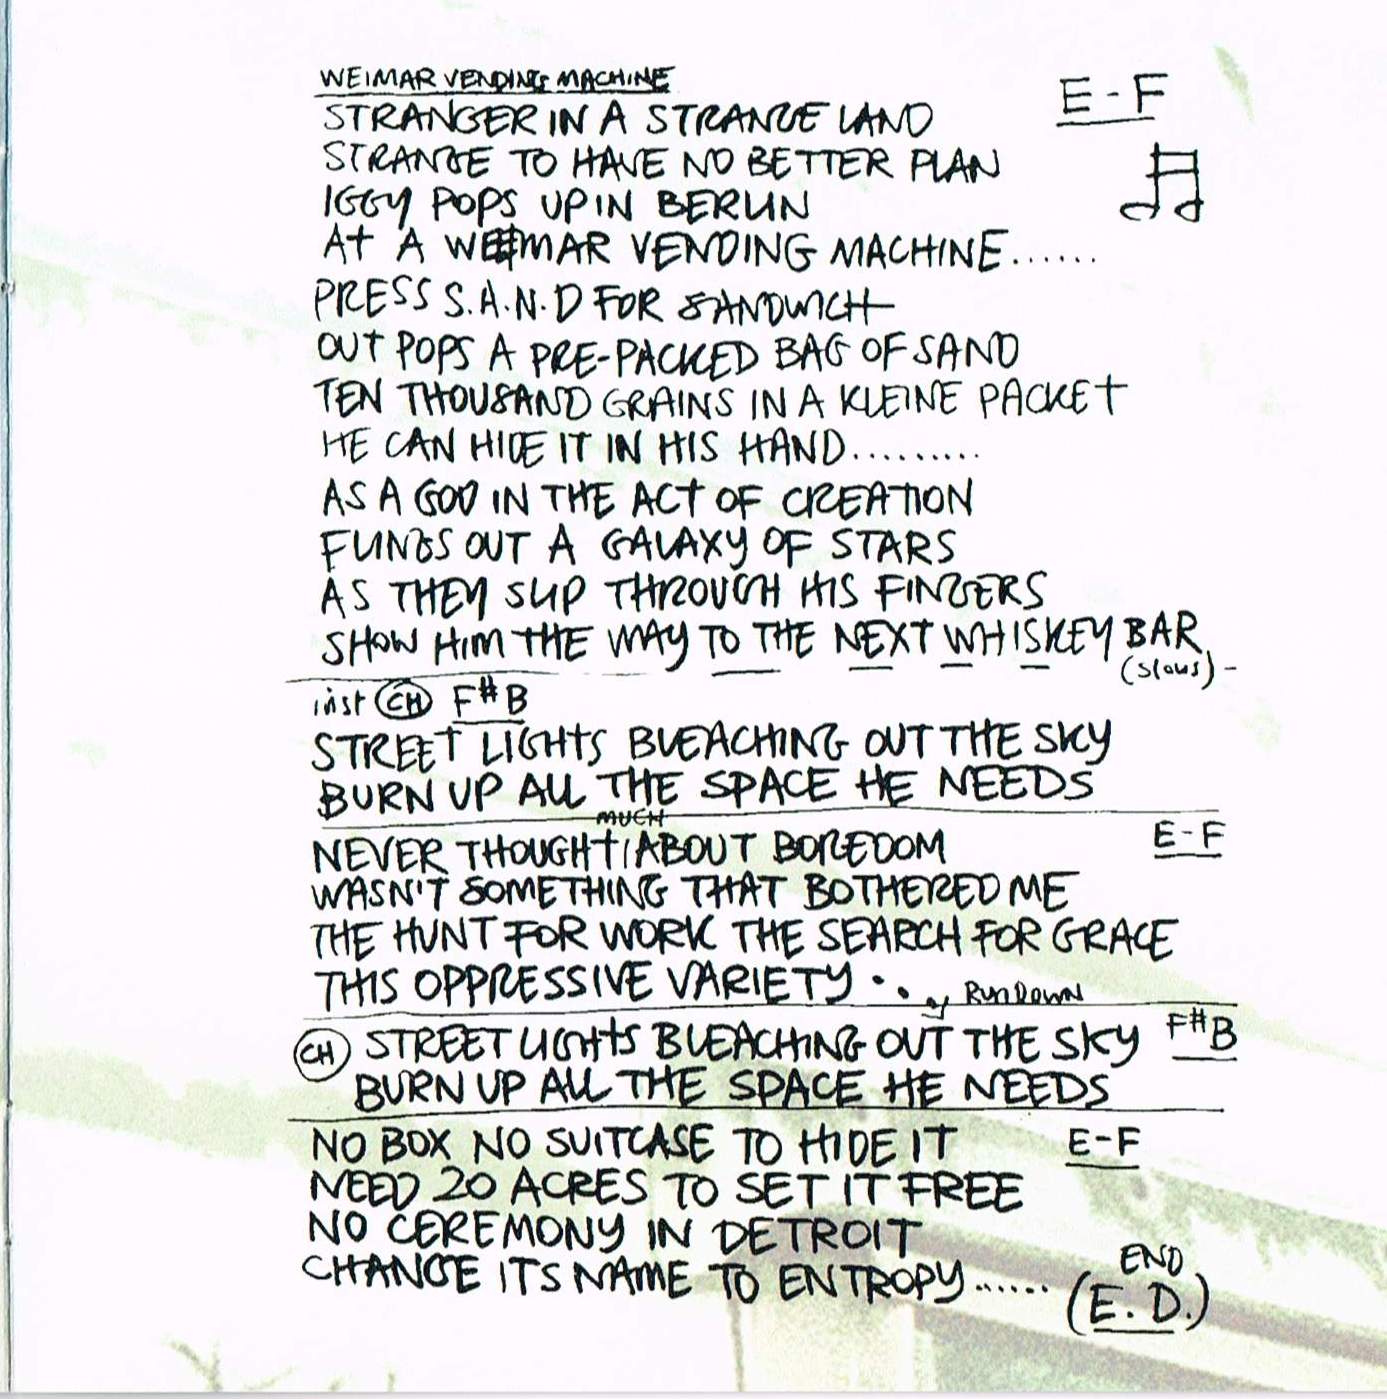 WEIMAR VENDING MACHINE
STRANGER IN A STRANGE LAND
E - F
STRANGE TO HAVE NO BETTER PLAN
IGGY POPS UP IN BERLIN
AT A WEIMAR VENDING MACHINE......
PRESS S.A.N.D FOR SANDWICH
OUT POPS A PRE-PACKED BAG OF SAND
TEN THOUSAND GRAINS IN A KLEINE PACKET
HE CAN HIDE IT IN HIS HAND.........
AS A GOD IN THE ACT OF CREATION
FLINGS OUT A GALAXY OF STARS
AS THEY SLIP THROUGH HIS FINGERS
SHOW HIM THE WAY TO THE NEXT WHISKEY BAR
(slows) -
inst CH F#B
STREET LIGHTS BLEACHING OUT THE SKY
BURN UP ALL THE SPACE HE NEEDS
NEVER THOUGHT MUCH ABOUT BOREDOM
E - F
WASN'T SOMETHING THAT BOTHERED ME
THE HUNT FOR WORK THE SEARCH FOR GRACE
THIS OPPRESSIVE VARIETY ...
RunDown
CH STREET LIGHTS BLEACHING OUT THE SKY F#B
BURN UP ALL THE SPACE HE NEEDS
NO BOX NO SUITCASE TO HIDE IT E-F
NEED 20 ACRES TO SET IT FREE
NO CEREMONY IN DETROIT
CHANGE ITS NAME TO ENTROPY......
END
(E. D.)